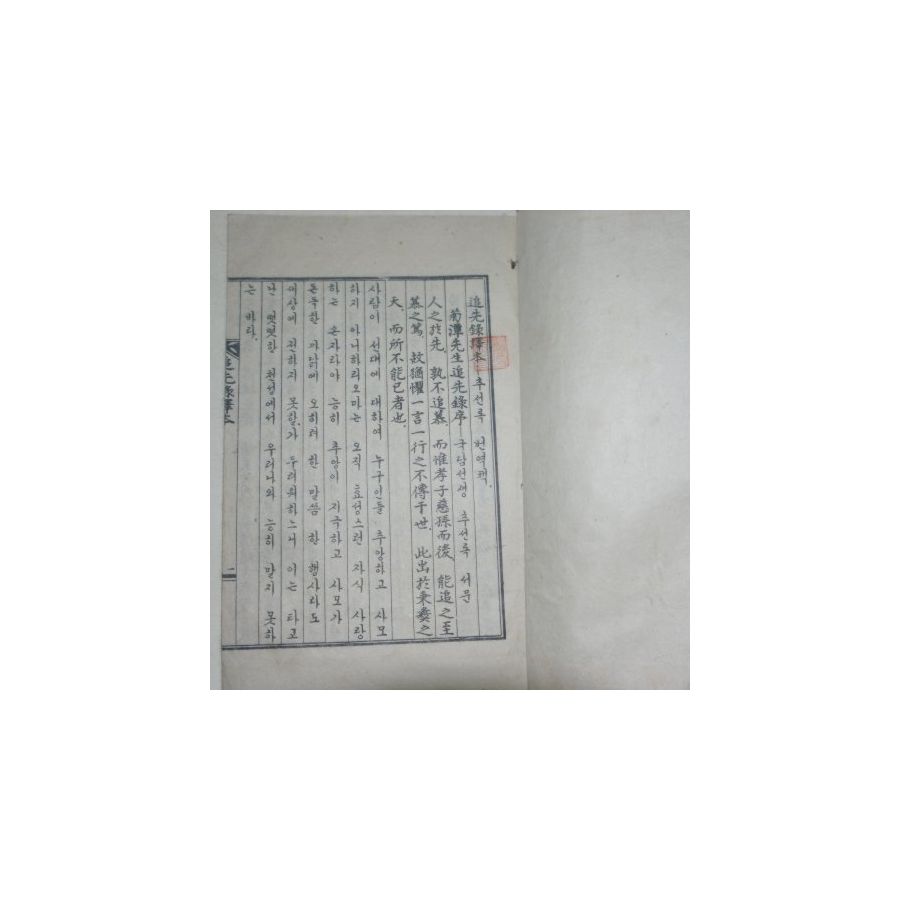 追先錄譯本 추선록 현역책.
菊潭先生追先錄序 국담선생 추선록 서문
人之於先, 孰不追慕, 而惟孝子慈孫而後, 能追之至
慕之篤, 故猶懼一言一行之不傳于世, 此出於秉彝之
天, 而所不能已者也.
사람이 선대에 대하여 누구인들 추앙하고 사모
하지 아니하리오마는 오직 효성스런 자식 사랑
하는 손자라야 능히 추앙이 지극하고 사모가
돈독한 까닭에 오히려 한 말씀 한 행사라도
이상에 전하지 못할가 두려워하느니 이는 타고
난 떳떳한 천성에서 우러나와 능히 말지 못하
는 바라.
追先錄譯本
一